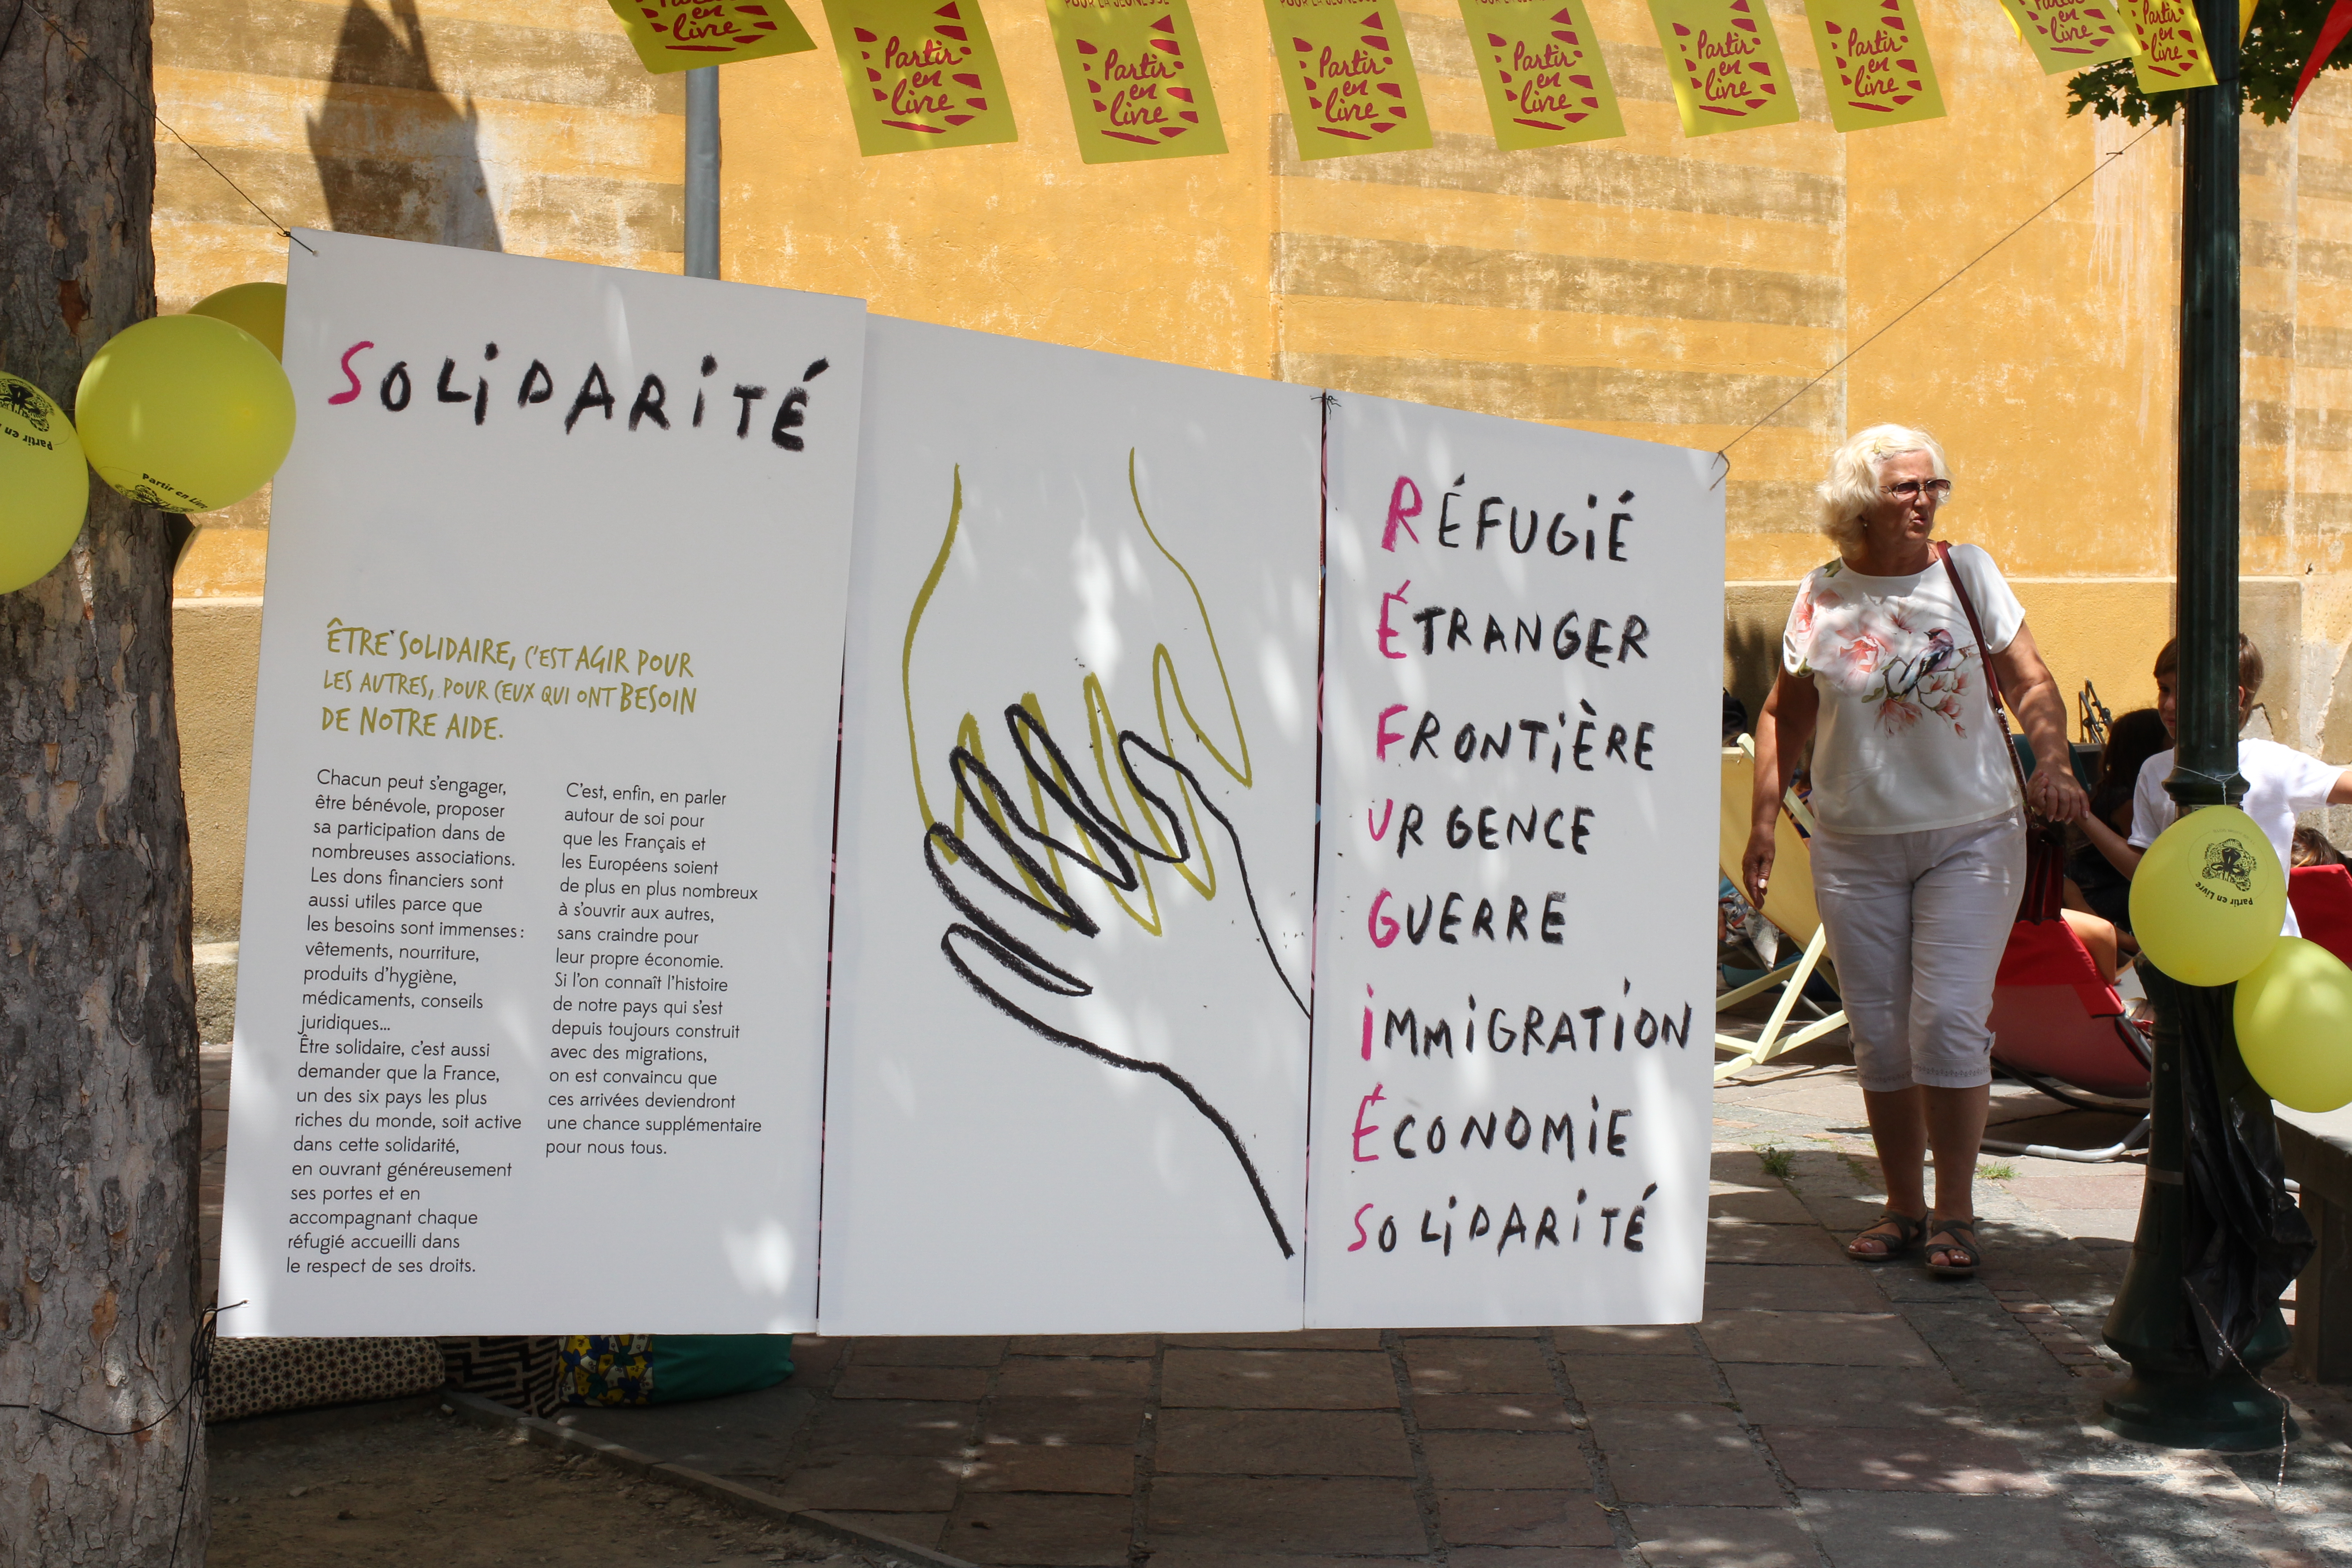 Partir
en
livre
Partir
en
livre
POUR LA JEUNESSE
Partir
en
livre
POUR LA JEUNESSE
Partir
en
livre
Partir
en
livre
Partir
en
livre
Partir
en
livre
Partir
en
livre
Partir
en
livre
Partir en
Partir en Livre
SOLiDARiTÉ
ÊTRE SOLIDAIRE, C'EST AGIR POUR
LES AUTRES, POUR CEUX QUI ONT BESOIN
DE NOTRE AIDE.
Chacun peut s'engager,
être bénévole, proposer
sa participation dans de
nombreuses associations.
Les dons financiers sont
aussi utiles parce que
les besoins sont immenses :
vêtements, nourriture,
produits d'hygiène,
médicaments, conseils
juridiques...
Être solidaire, c'est aussi
demander que la France,
un des six pays les plus
riches du monde, soit active
dans cette solidarité,
en ouvrant généreusement
ses portes et en
accompagnant chaque
réfugié accueilli dans
le respect de ses droits.
C'est, enfin, en parler
autour de soi pour
que les Français et
les Européens soient
de plus en plus nombreux
à s'ouvrir aux autres,
sans craindre pour
leur propre économie.
Si l'on connaît l'histoire
de notre pays qui s'est
depuis toujours construit
avec des migrations,
on est convaincu que
ces arrivées deviendront
une chance supplémentaire
pour nous tous.
RÉFUGiÉ
ÉTRANGER
FRONTiÈRE
URGENCE
GUERRE
iMMiGRATiON
ÉCONOMiE
SOLiDARiTÉ
Partir en Livre